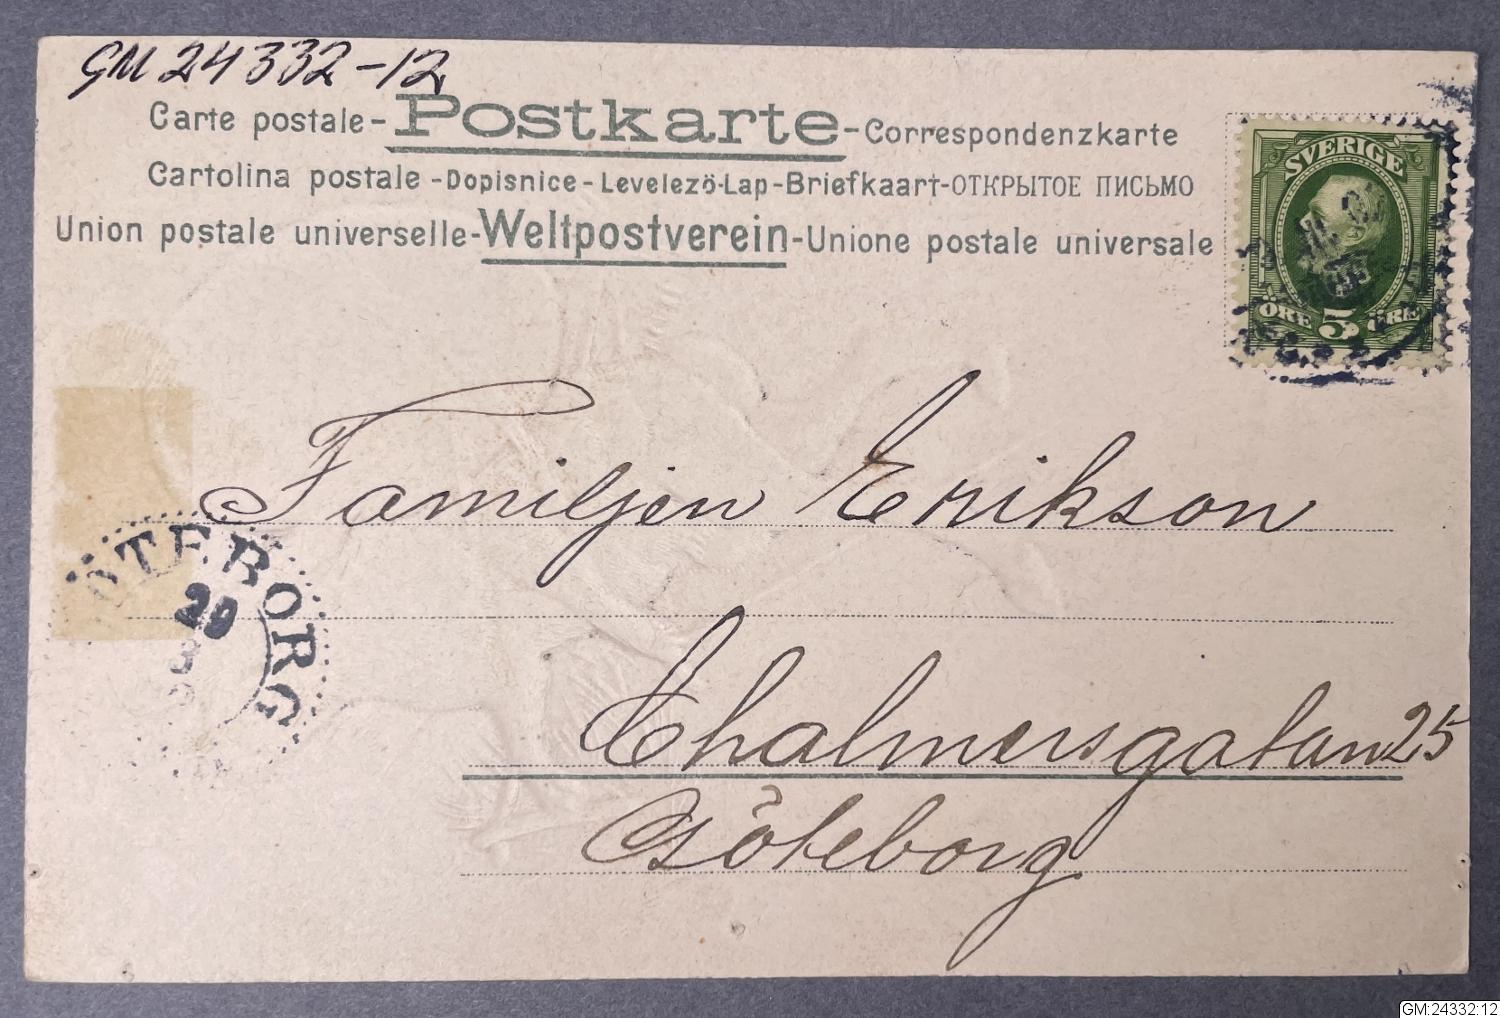 GM 24332-12
Carte postale-Postkarte-Correspondenzkarte
Cartolina postale-Dopisnice-Levelezö-Lap-Briefkaart-ОТКРЫТОЕ ПИСЬМО
Union postale universelle-Weltpostverein-Unione postale universale
SVERIGE
ÖRE 5 ÖRE
Familjen Erikson
GÖTEBORG
20
3
Chalmersgatan 25
Göteborg
GM:24332:12